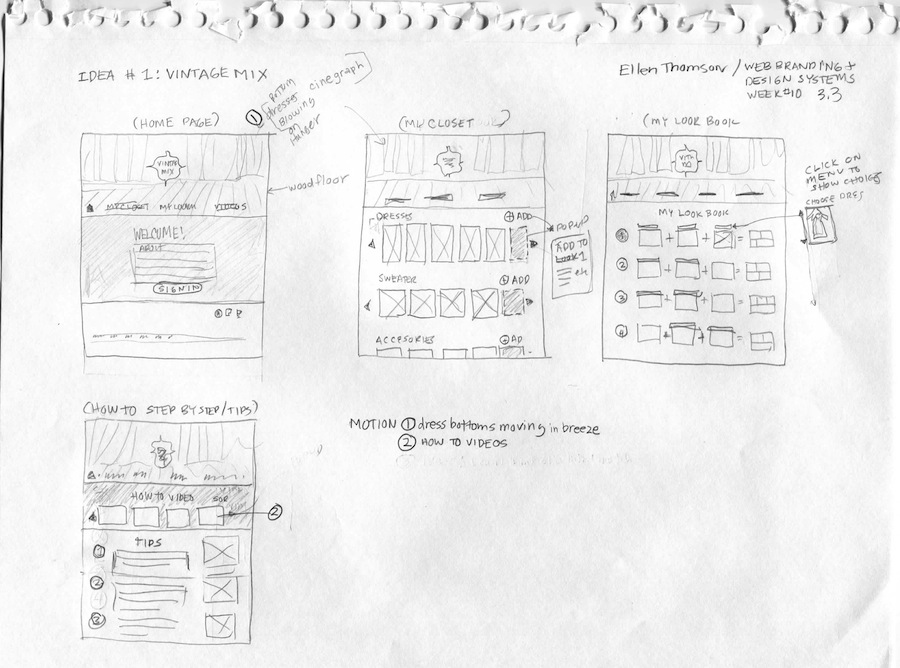 IDEA # 1: VINTAGE MIX
Ellen Thomson / WEB BRANDING +
DESIGN SYSTEMS
WEEK #10 3.3
① BOTTOM
dresses
Blowing
on
Hanger
cinegraph
(HOME PAGE)
VINTAGE
MIX
wood floor
MY CLOSET MY LOOK VIDEOS
WELCOME!
ABOUT
SIGN IN
(MY CLOSET)
DRESSES + ADD
POPUP
ADD TO
LOOK 1
etc
SWEATER + ADD
ACCESORIES + AD
(MY LOOK BOOK)
MY LOOK BOOK
① + + =
② + + =
③ + + =
④ + + =
CLICK ON
MENU TO
SHOW CHOICES
CHOOSE DRES
(HOW TO STEP BY STEP/TIPS)
HOW TO VIDEO
②
TIPS
①
②
③
MOTION ① dress bottoms moving in breeze
② HOW TO VIDEOS